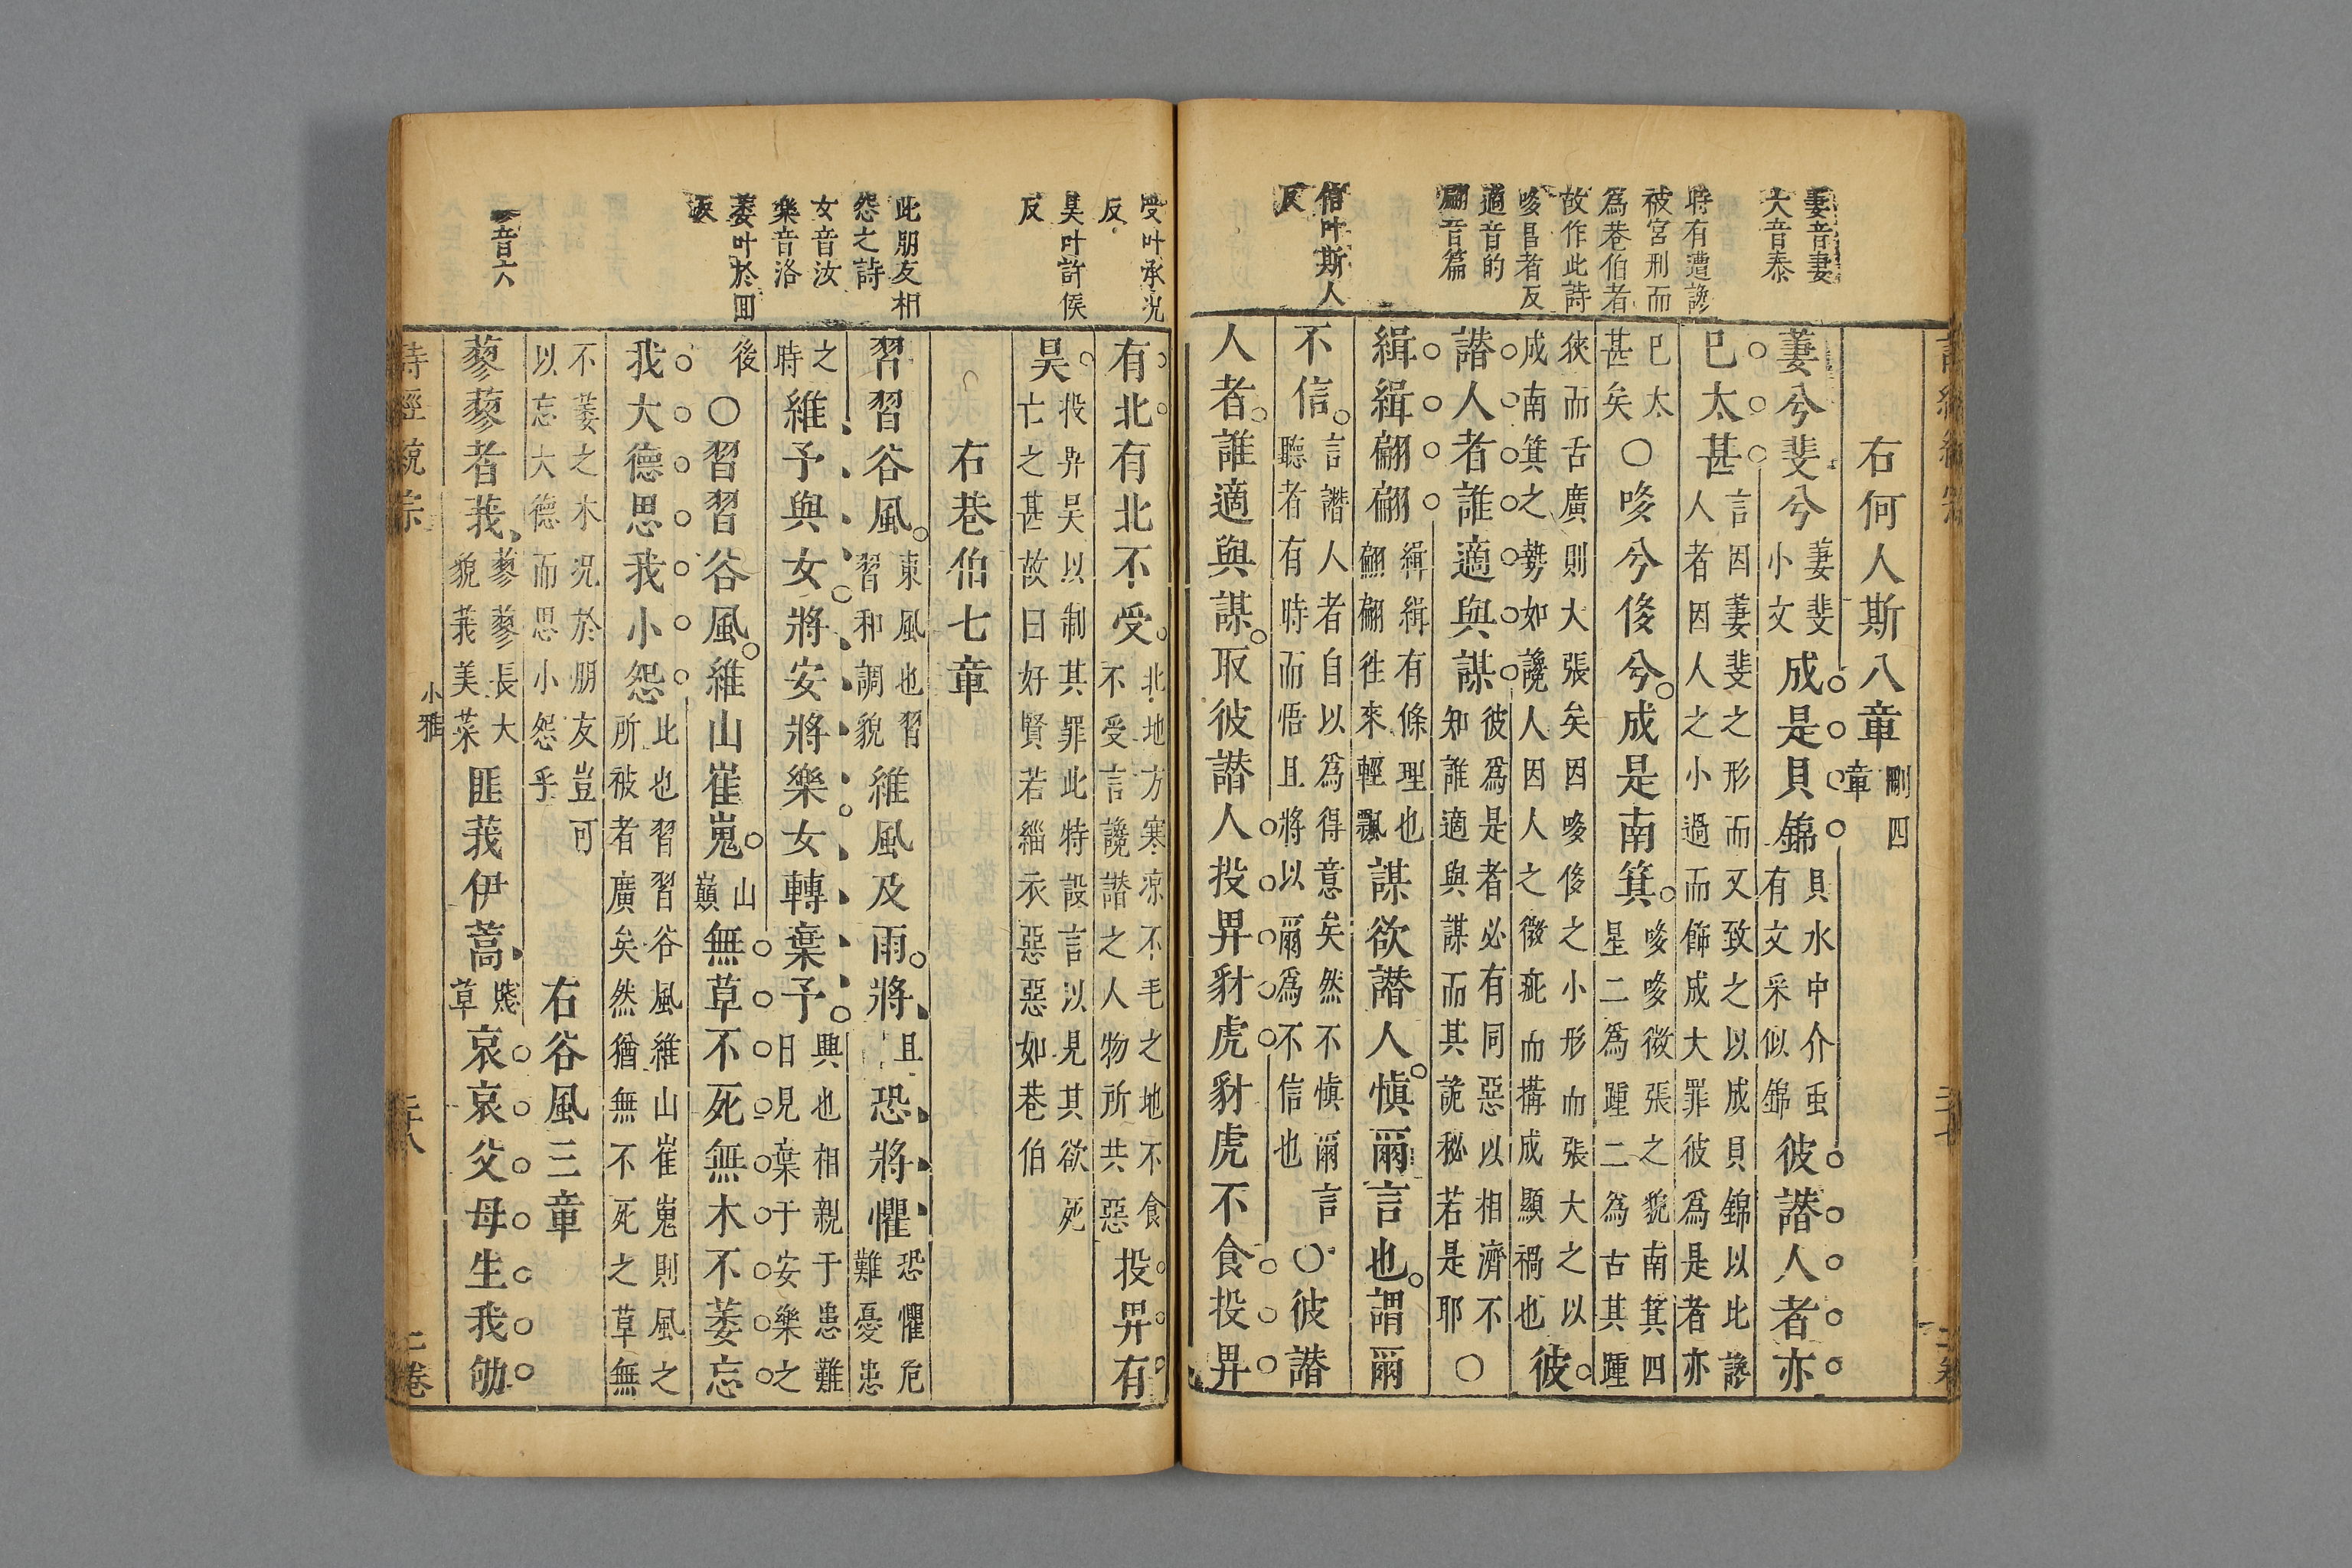 萋音妻
大音泰
時有遭讒
被宮刑而
為巷伯者
故作此詩
哆昌者反
適音的
翩音篇
信叶斯人
反
右何人斯八章刪四章
萋兮斐兮萋斐小文成是貝錦貝水中介虫有文采似錦彼譖人者亦
已太甚言因萋斐之形而文致之以成貝錦以比讒人者因人之小過而飾成大罪彼爲是者亦
已太甚矣○哆兮侈兮成是南箕哆哆微張之貌南箕四星二為踵二為舌其踵
狹而舌廣則大張矣因哆侈之小形而張大之以成南箕之勢如讒人因人之微疵而搆成顯禍也彼
譖人者誰適與謀彼爲是者必有同惡以相濟不知誰適與謀而其詭秘若是耶○
緝緝翩翩緝緝有條理也翩翩徃來輕飄謀欲譖人慎爾言也謂爾
不信言譖人者自以爲得意矣然不慎爾言聽者有時而悟且將以爾爲不信也○彼譖
人者誰適與謀取彼譖人投畀豺虎豺虎不食投畀
受叶承呪
反
昊叶許侯
反
此朋友相
怨之詩
女音汝
樂音洛
萎叶於回
反
蓼音六
有北有北不受北地方寒凉不毛之地不食不受言讒譖之人物所共惡投畀有
昊投畀昊以制其罪此特設言以見其欲死亡之甚故曰好賢若緇衣惡惡如巷伯
右巷伯七章
習習谷風東風也習習和調貌維風及雨將且恐將懼恐懼危難憂患
之時維予與女將安將樂女轉棄予興也相親于患難日見棄于安樂之
後○習習谷風維山崔嵬山巔無草不死無木不萎忘
我大德思我小怨此也習習谷風維山崔嵬則風之所被者廣矣然猶無不死之草無
不萎之木况於朋友豈可以忘大德而思小怨乎右谷風三章
蓼蓼者莪蓼蓼長大貌莪美菜匪莪伊蒿賤草哀哀父母生我劬
小雅